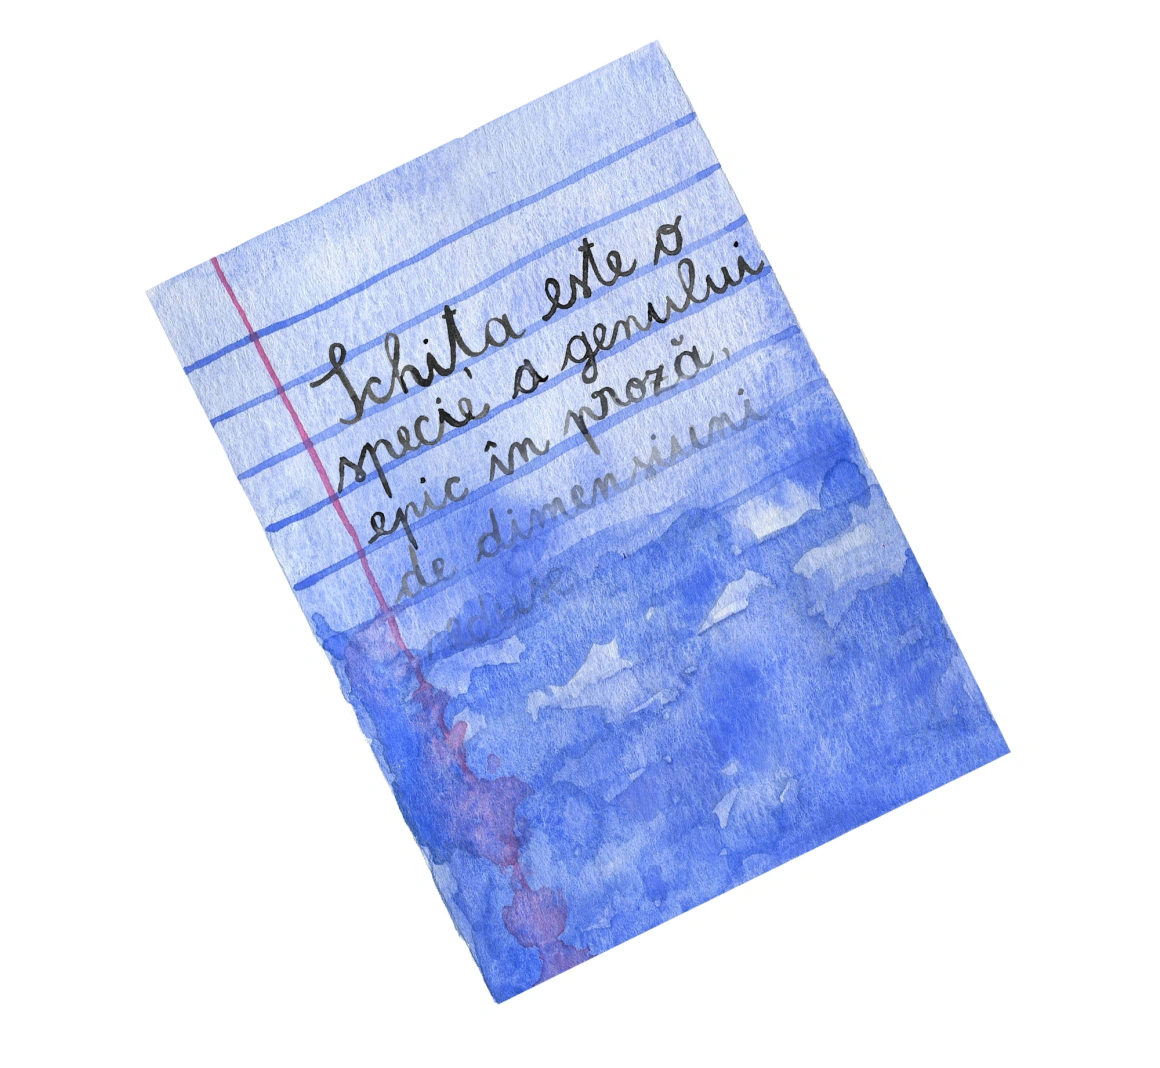 Schita este o
specie a genului
epic în proză,
de dimensiuni
reduse